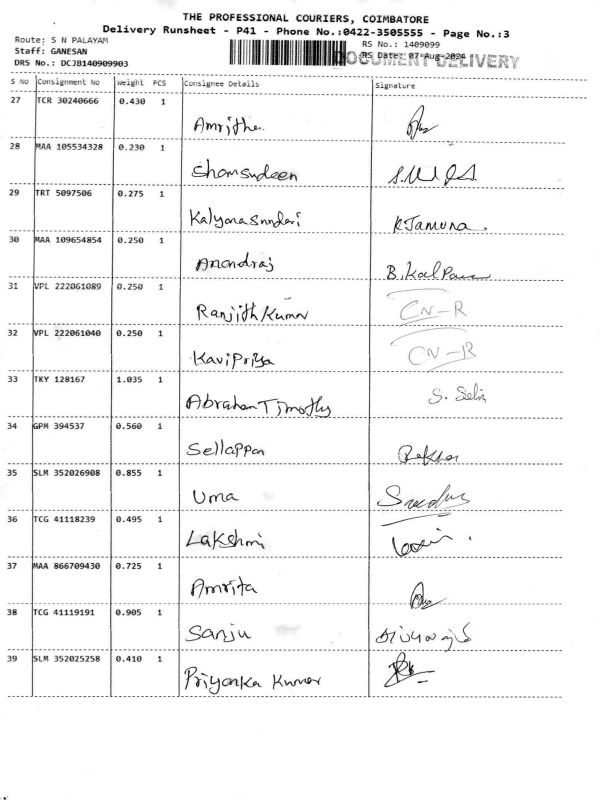 THE PROFESSIONAL COURIERS, COIMBATORE
Delivery Runsheet - P41 - Phone No.:0422-3505555 - Page No.:3
Route: S N PALAYAM
RS No.: 1409099
Staff: GANESAN
RS Date: 07-Aug-2024
DOCUMENT DELIVERY
DRS No.: DCJB140909903
S No Consignment No Weight PCS Consignee Details Signature
27 TCR 30240666 0.430 1
Amritha
28 MAA 105534328 0.230 1
Shamsudeen
29 TRT 5097506 0.275 1
Kalyanasundari K Jamuna.
30 MAA 109654854 0.250 1
Anandraj B. Kalpana
31 VPL 222061089 0.250 1
Ranjith Kumar CN-R
32 VPL 222061040 0.250 1
Kavipriya CN-R
33 TKY 128167 1.035 1
Abraham Timothy
34 GPM 394537 0.560 1
Sellappan
35 SLM 352026908 0.855 1
Uma
36 TCG 41118239 0.495 1
Lakshmi
37 MAA 866709430 0.725 1
Amrita
38 TCG 41119191 0.905 1
Sanju
39 SLM 352025258 0.410 1
Priyanka Kumar